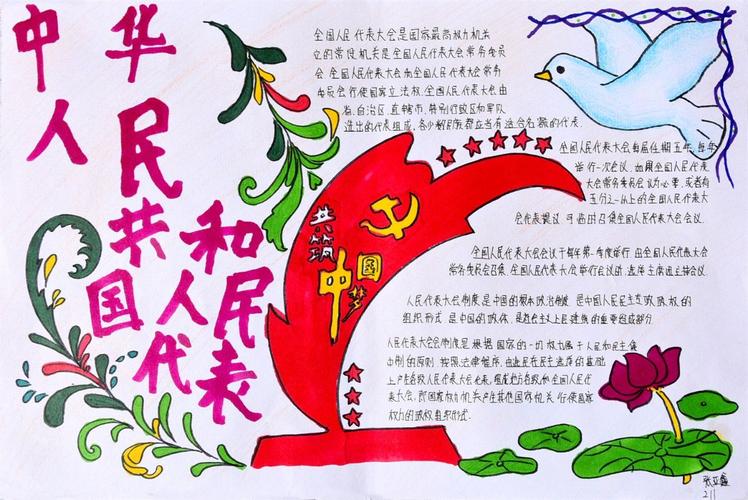 中华
人民
共和
国人民
代表
共筑
中国梦
全国人民代表大会是国家最高权力机关
它的常设机关是全国人民代表大会常务委员
会 全国人民代表大会和全国人民代表大会常务
委员会行使国家立法权 全国人民代表大会由
省、自治区、直辖市、特别行政区和军队
选出的代表组成，各少数民族都应当有适合名额的代表.
全国人民代表大会每届任期五年，每年
举行一次会议，如果全国人民代表
大会常务委员会认为必要，或者有
五分之一以上的全国人民代表大
会代表提议 可临时召集全国人民代表大会会议.
全国人民代表大会会议于每年第一季度举行 由全国人民代表大会
常务委员会召集 全国人民代表大会举行会议时 选举主席团主持会议.
人民代表大会制度是中国的根本政治制度 是中国人民民主专政政权的
组织形式 是中国的政体
的重要组成部分.
人民代表大会制度是 根据 国家的一切权力属于人民和民主集
中制的原则 按照法律程序，由选民在民主选举的基础
上产生各级人民代表大会代表，组成地方各级和全国人民代
表大会，即国家权力机关产生其他国家机关 行使国家
权力的政权组织形式.
211